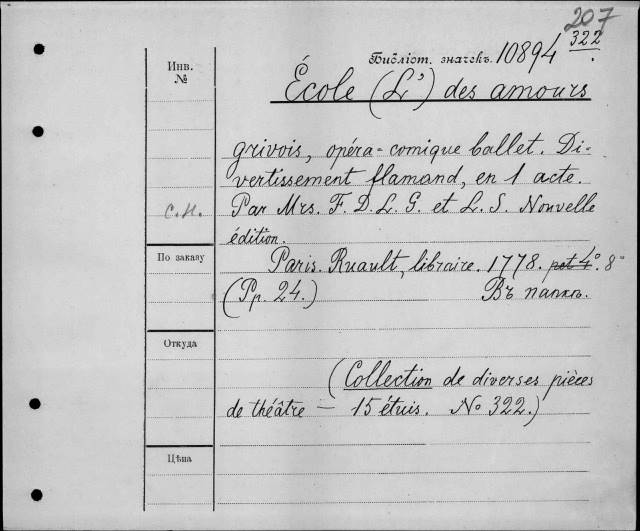 207
Библіот. значекъ. 10894 322.
Инв.
№
École (L') des amours
grivois, opéra-comique ballet. Di-
vertissement flamand, en 1 acte.
С.Н. Par Mrs. F. D. L. G. et L. S. Nouvelle
édition.
По заказу
Paris. Ruault, libraire. 1778. pet 4°. 8°
(Pp. 24.) Въ папкѣ.
Откуда
(Collection de diverses pièces
de théâtre — 15 étuis. No 322.)
Цѣна